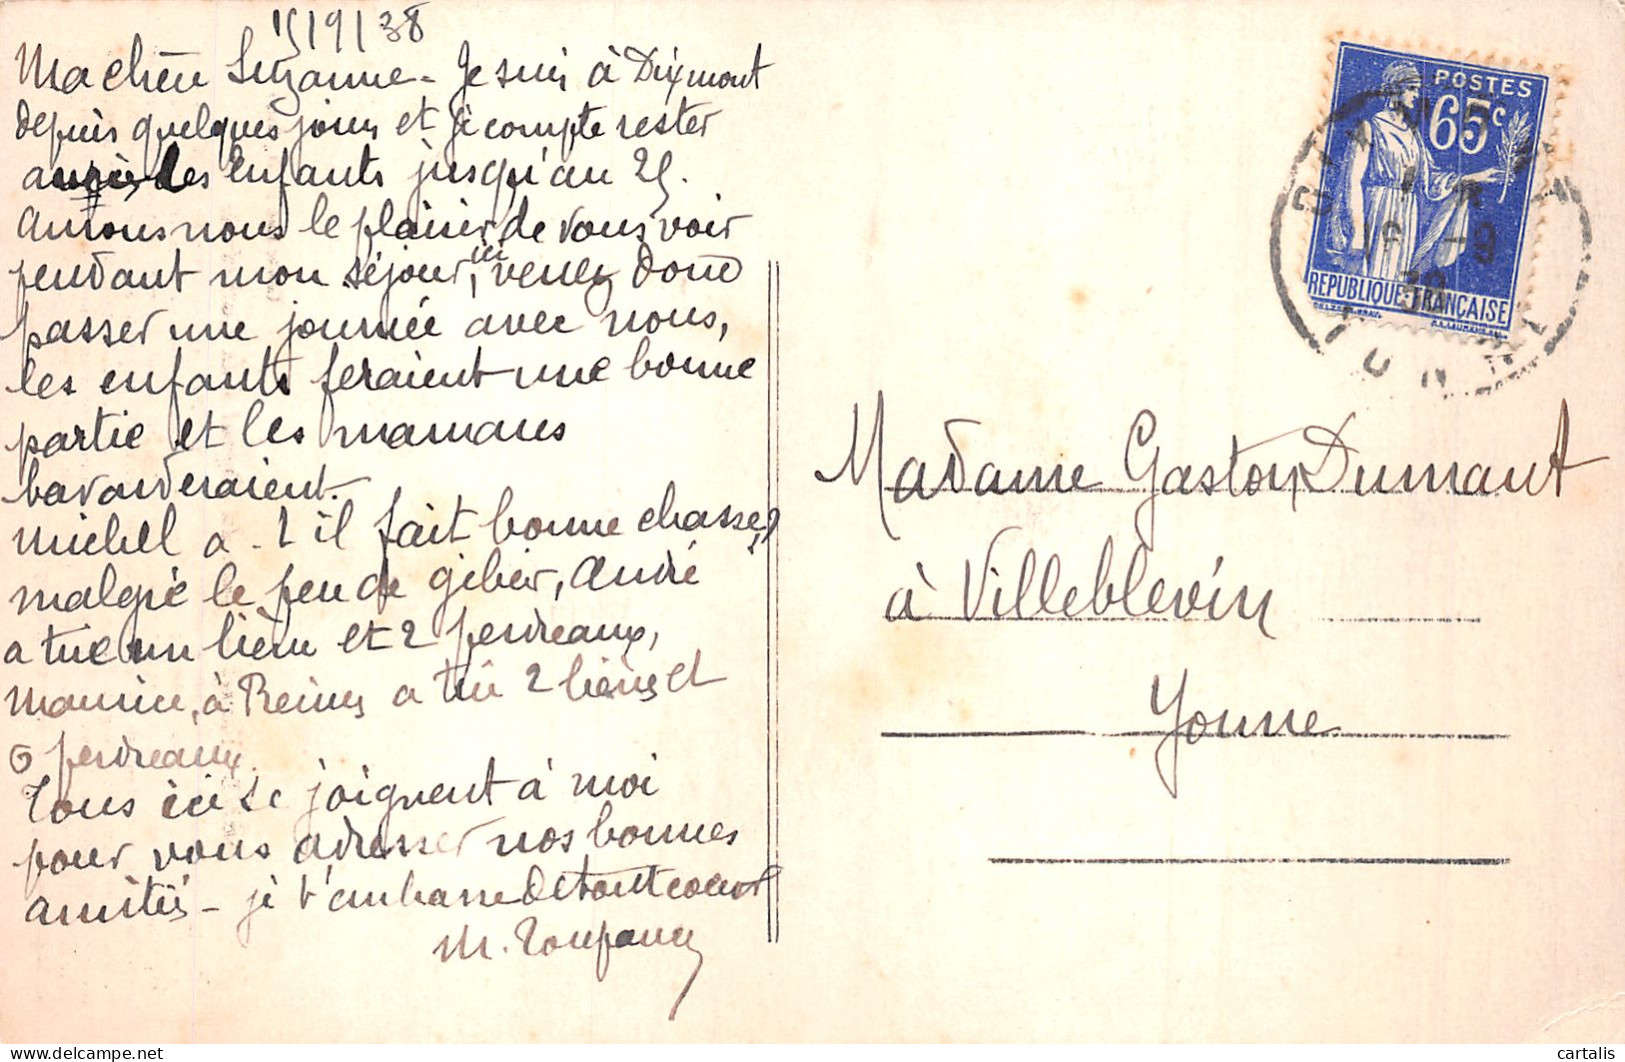 15/9/38
Ma chère Suzanne - Je suis à Dixmont
depuis quelques jours et je compte rester
auprès des enfants jusqu'au 25.
Aurons nous le plaisir de vous voir
pendant mon séjour, ici venez donc
passer une journée avec nous,
les enfants feraient une bonne
partie et les mamans
bavarderaient.
Michel a-t-il fait bonne chasse ?
malgré le peu de gibier, André
a tué un lièvre et 2 perdreaux,
Maurice, à Reims a tué 2 lièvres et
6 perdreaux.
Tous ici se joignent à moi
pour vous adresser nos bonnes
amitiés - je t'embrasse de tout coeur
M.
POSTES
65c
REPUBLIQUE FRANÇAISE
DIXMONT
16 -9
38
YONNE
Madame Gaston Dumant
à Villeblevin
Yonne
cartalis